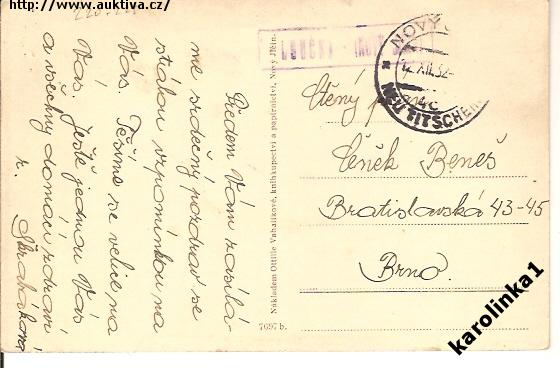 http://www.auktiva.cz
Předem Vám zasílá-
me srdečný pozdrav se
stálou vzpomínkou na
Vás. Těšíme se velice na
Vás. Ještě jednou Vás
a všechny domácí zdraví
Nákladem Ottilie Vahalíkové, knihkupectví a papírnictví, Nový Jičín.
7697 b.
NOVÝ
XII.32
4c
NEU TITSCHEIN
Ctěný pan
Čeněk Beneš
Bratislavská 43-45
Brno.
karolinka1